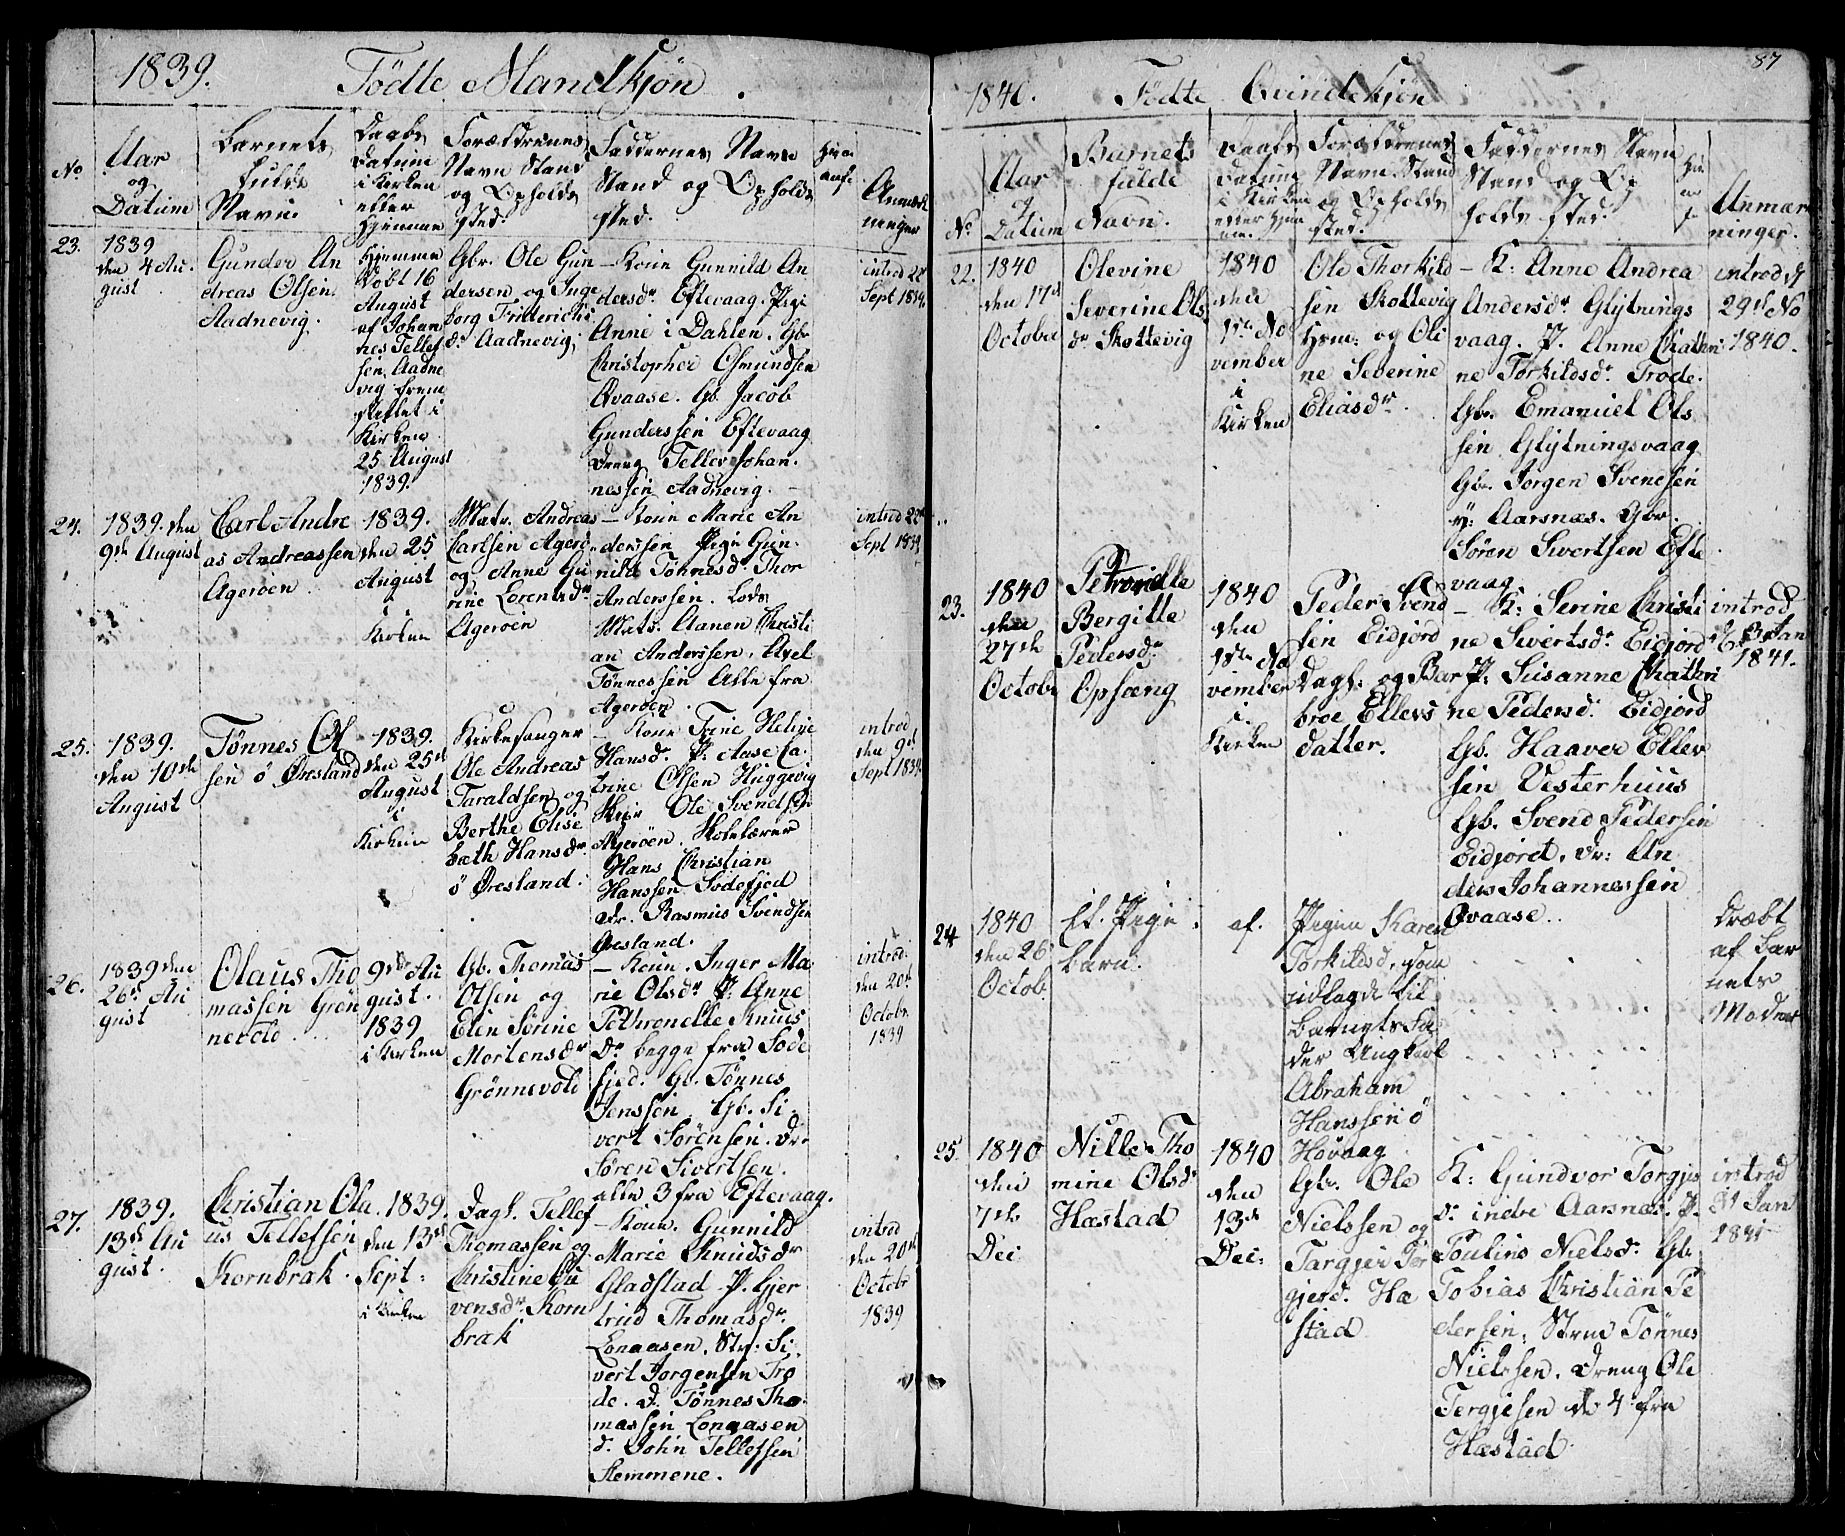 1839. Födte Mandkjön.
No
Aar
og
Datum
Barnets
fulde
Navn.
Daabs
Datum
i Kirken
eller
Hjemme
Forældrenes
Navn Stand
og Opholds
sted.
Faddernes Navn
Stand og Opholds
sted.
Anmærk
ninger
23.
1839
den 4 Au
gust
Gunder An
dreas Olsen
Aadnevig.
Hjemme
döbt 16
August
af Johan
nes Tellef
sen Aadne
vig frem
stillet i
Kirken
25 August
1839.
Gbr. Ole Gun
dersen og Inge
borg Friderichs
dr Aadnevig
– Kone Gunnild An
dersdr Eftevaag. Pige
Anne i Dahlen. Gb.
Christopher Osmundsen
Qvaase. Gb. Jacob
Gunderssen Eftevaag
Dreng Tellev Johan
nessen Aadnevig.
introd 22
Sept 1839.
24.
1839. den
9de August
Carl Andre
as Andreassen
Ageröen
1839.
den 25
August
i
Kirken
Matr. Andreas
Carlsen Ageröe
og Anne Gu
rine Lorentsdr
Ageröen
– Kone Marie An
derssen Pige Gun
nild Tönnesdr Thor
Anderssen. Lods
Matr. Aanen Christi
an Anderssen, Axel
Tönnessen Alle fra
Ageröen.
introd 22
Sept 1839
25.
1839.
den 10de
August
Tönnes Ol
sen ö Öresland
1839.
den 25de
August
i
Kirken
Kirkesanger
Ole Andreas
Taraldsen og
Berthe Elise
bæth Hansdr
ö Öresland.
– Kone Trine Helvje
Hansdr. P. Aase Ca
trine Olsen Huggevig
Ole Svendsen
Ageröen. Skolelærer
Hans Christian
Hanssen Södefjed
dr. Rasmus Svendsen
Öresland.
introd
den 9de
Sept 1839
26.
1839 den
26de Au
gust
Olaus Tho
massen Grön
nevold
9de Au
gust.
1839
i Kirken
Gb. Thomas
Olsen og
Elen Sörine
Mortensdr
Grönnevold
– Kone. Inger Ma
rie Olsdr P. Anne
Pethronelle Knuds
Dr begge fra Söde
fjed. Gb. Tönnes
Jenssen. Gb. Si
vert Sörensen. dr
Sören Sivertsen.
alle 3 fra Eftevaag.
introd.
den 20de
Octobr.
1839
27.
1839.
13de Au
gust.
Christian Ola
us Tellefsen
Kornbræk.
1839.
den 13de
Sept:
i Kirken
Dagl. Tellef
Thomassen og
Christine Gu
vensdr. Korn
bræk
– Kone. Gunnild
Marie Knudsdr
Gladstad P. Gjer
trud Thomasdr
Lonaasen. Str: Si
vert Jorgensen Tro
de. D. Tönnes Tho
massen Lonaasen
d. John Tellefsen
Stemmene.
introd
den 20de
Octobr
1839
87
1840. Födte Qvindekjön
No.
Aar
og
Datum
Barnets
fulde
Navn.
Daabs
Datum
i Kirken
eller Hjem
me.
Forældrenes
Navn. Stand
og Opholds
sted.
Faddernes Navn
Stand og Op
holds sted.
Anmær
ninger.
22.
1840
den 17de
October
Olevine
Severine Ols
dr Skottevig
1840
den
1ste No
vember
i
Kirken
Ole Thorkild
sen Skottevig
Hsm: og Oli
ne Severine
Eliasdr.
– K: Anne Andrea
Andersdr. Glytnings
vaag. P. Anne Cathri
ne Törkildsdr. Trode.
Gb. Emanuel Ols
sen Glytningsvaag
Gb. Jorgen Svendsen
y: Aarsnæs. Gbr.
Sören Sivertsen Efte
vaag
introd d
29de No
1840.
23.
1840
den
27de
Octobr
Petronelle
Bergitte
Pedersdr
Opsæng
1840
den
1ste No
vember
i
Kirken
Peder Svend
sen Eidjord
Dagl: og Bar
broe Ellevs
datter.
– K: Serine Christi
ne Sivertsdr. Eidjord
P: Susanne Cathri
ne Pedersdr. Eidjord
Gb. Haaver Ellev
sen Vesterhuus
Gb. Svend Pedersen
Eidjord, dr: An
ders Johannessen
Qvaase.
introd
d 3 Jan
1841.
24
1840
den 26
Octob.
Et. Pige
barn.
af.
Pigen Karen
Torkildsd, som
udlagde til
Barnets Fa
der Ungkarl
Abraham
Hanssen ö
Hövaag
dræbt
af Bar
nets
Moder
25.
1840
den
7de
Dec
Nille Tho
mine Olsdr
Hæstad
1840
den
13de
Dec:
Gb. Ole
Nielssen og
Targjer Tor
gjersd. Hæ
stad
K: Gundvor Torgjus
dr indre Aarsnæs. P.
Pouline Nielsdr. Gb.
Tobias Christian Pe
dersen, Strm Tönnes
Nielssen. Dreng Ole
Tergjesen de 4 fra
Hæstad
introd
31 Jan
1841